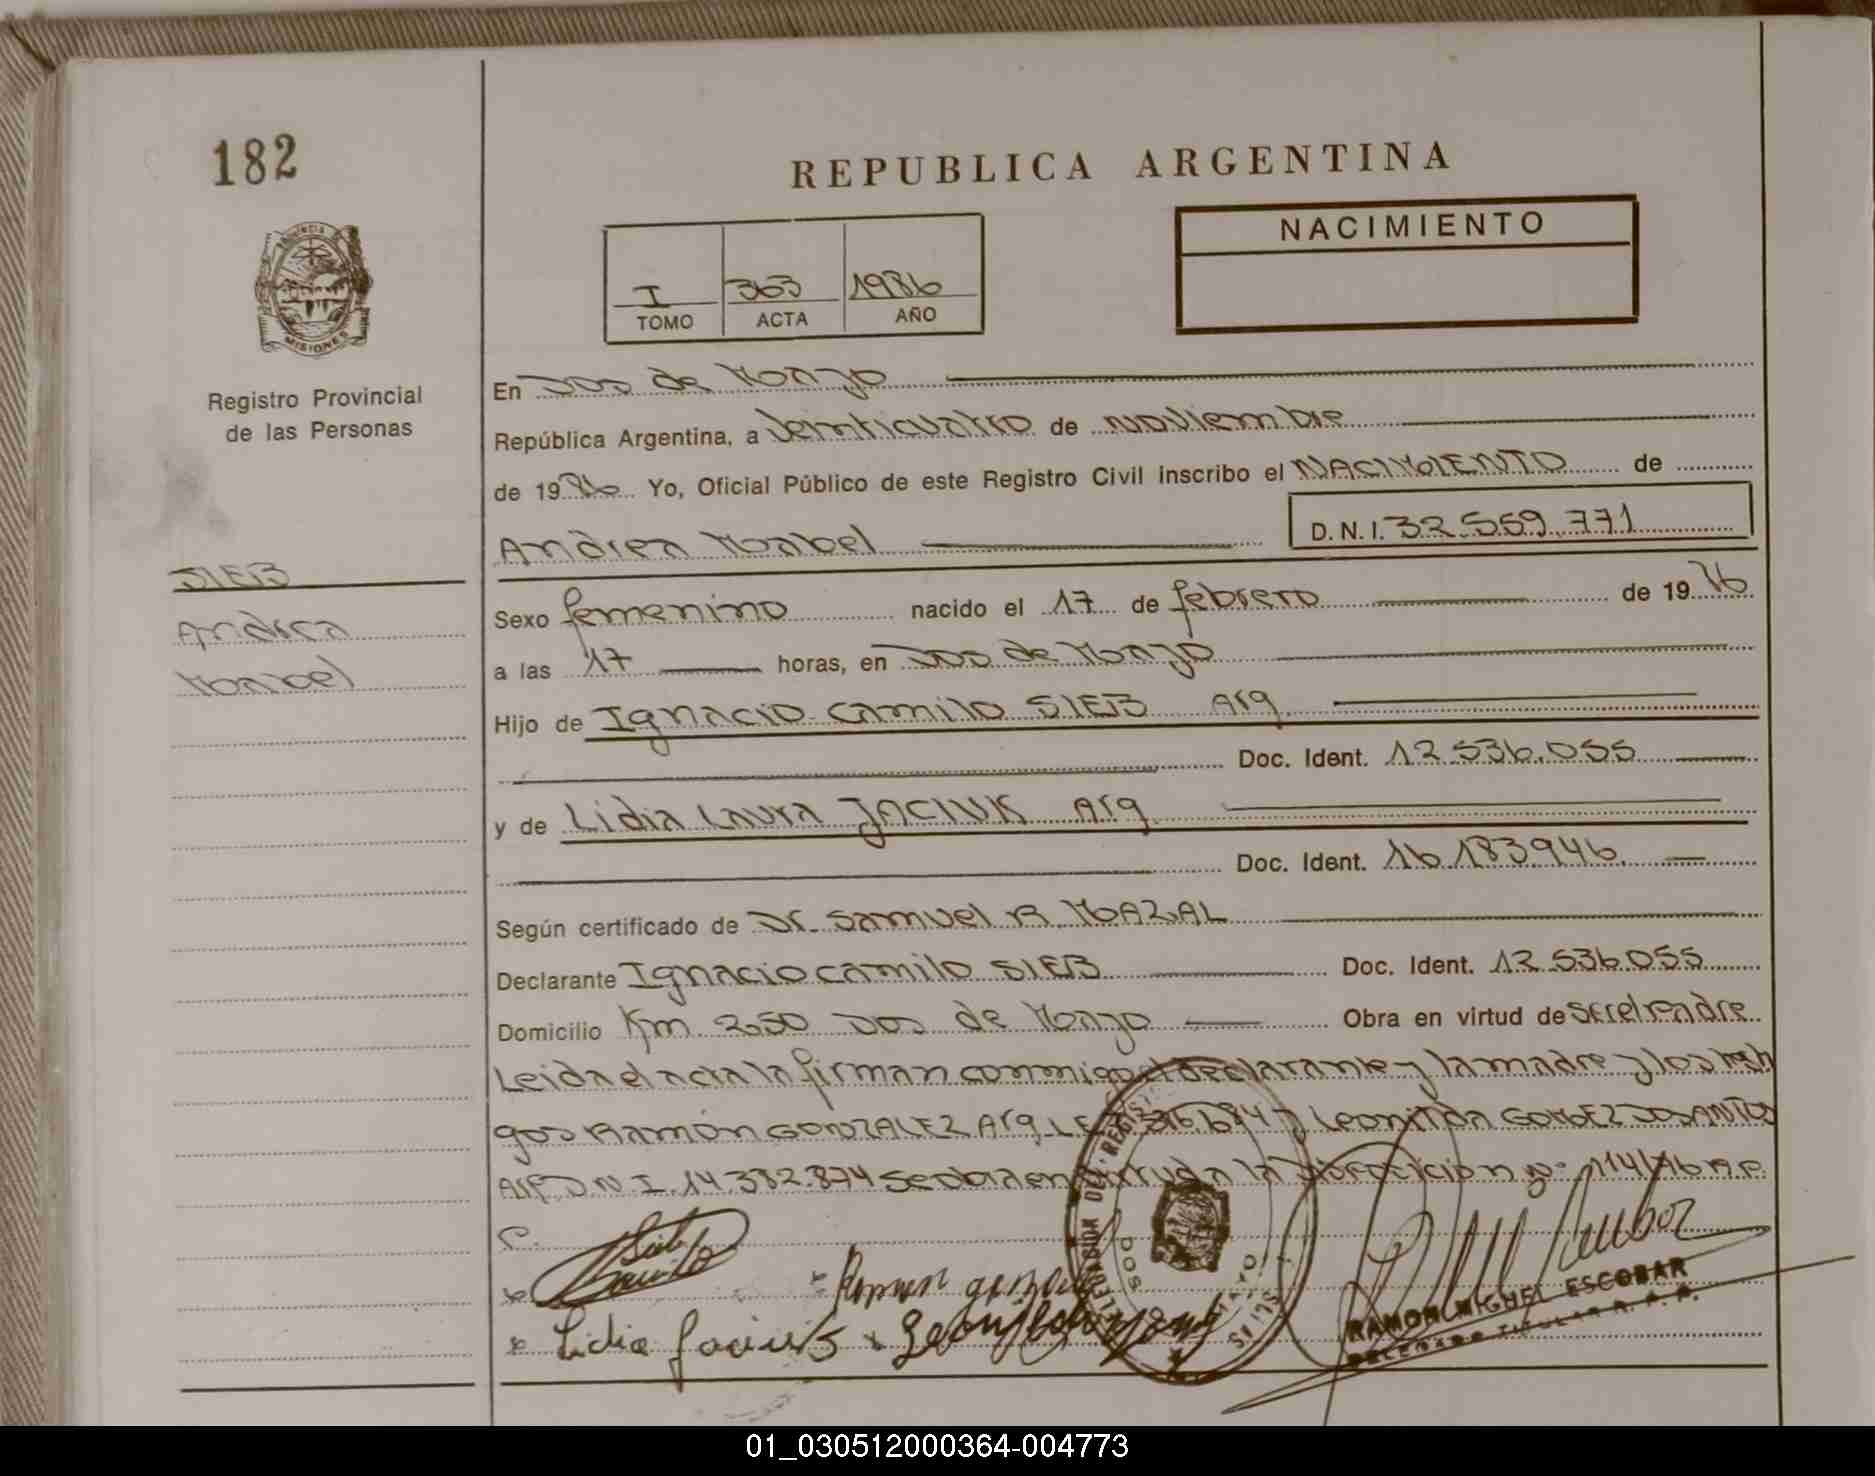 182
REPUBLICA ARGENTINA
NACIMIENTO
I 363 1986
TOMO ACTA AÑO
PROVINCIA DE
MISIONES
Registro Provincial
de las Personas
En Dos de Mayo
República Argentina, a veinticuatro de noviembre
de 1986 Yo, Oficial Público de este Registro Civil inscribo el NACIMIENTO de
Andrea Mabel D.N.I. 32.559.771
SIEB
Andrea
Mabel
Sexo femenino nacido el 17 de febrero de 19
a las 17 horas, en Dos de Mayo
Hijo de Ignacio Camilo SIEB Arg.
Doc. Ident. 12.536.055
y de Lidia Laura JACIUK Arg.
Doc. Ident. 16.183.946
Según certificado de Dr. Samuel R. MAZAL
Declarante Ignacio Camilo SIEB Doc. Ident. 12.536.055
Domicilio Km 250 Dos de Mayo Obra en virtud de ser el padre
Leida el acta la firman conmigo el declarante y la madre y los
Ramón GONZALEZ Arg. L.E. y Leonilda GOMEZ DOS SANTOS
Arg. D.N.I. 14.382.874 en virtud a la Disposición Nº R.P.
C.
Sieb
Camilo
Ramon
Lidia Jaciuk
DELEGACION DEL REGIST
DOS MAYO
RAMON MIGUEL ESCOBAR
DELEGADO TITULAR
01_030512000364-004773